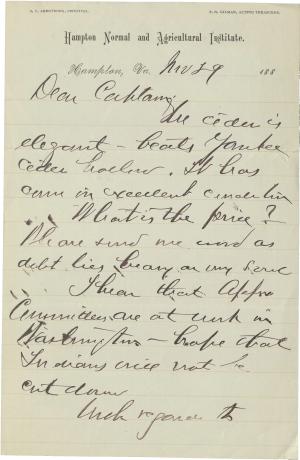 S. C. ARMSTRONG, PRINCIPAL.
F. N. GILMAN, ACTING TREASURER.
Hampton Normal and Agricultural Institute.
Hampton, Va. Nov 29 188
Dear Captain,
The cider is
elegant – beats Yankee
cider hollow. It has
come in excellent condition
What is the price?
Please send me word as
debt lies heavy on my soul
I hear that Appro
Committees are at work in
Washington – hope that
Indians will not be
cut down
With regards to